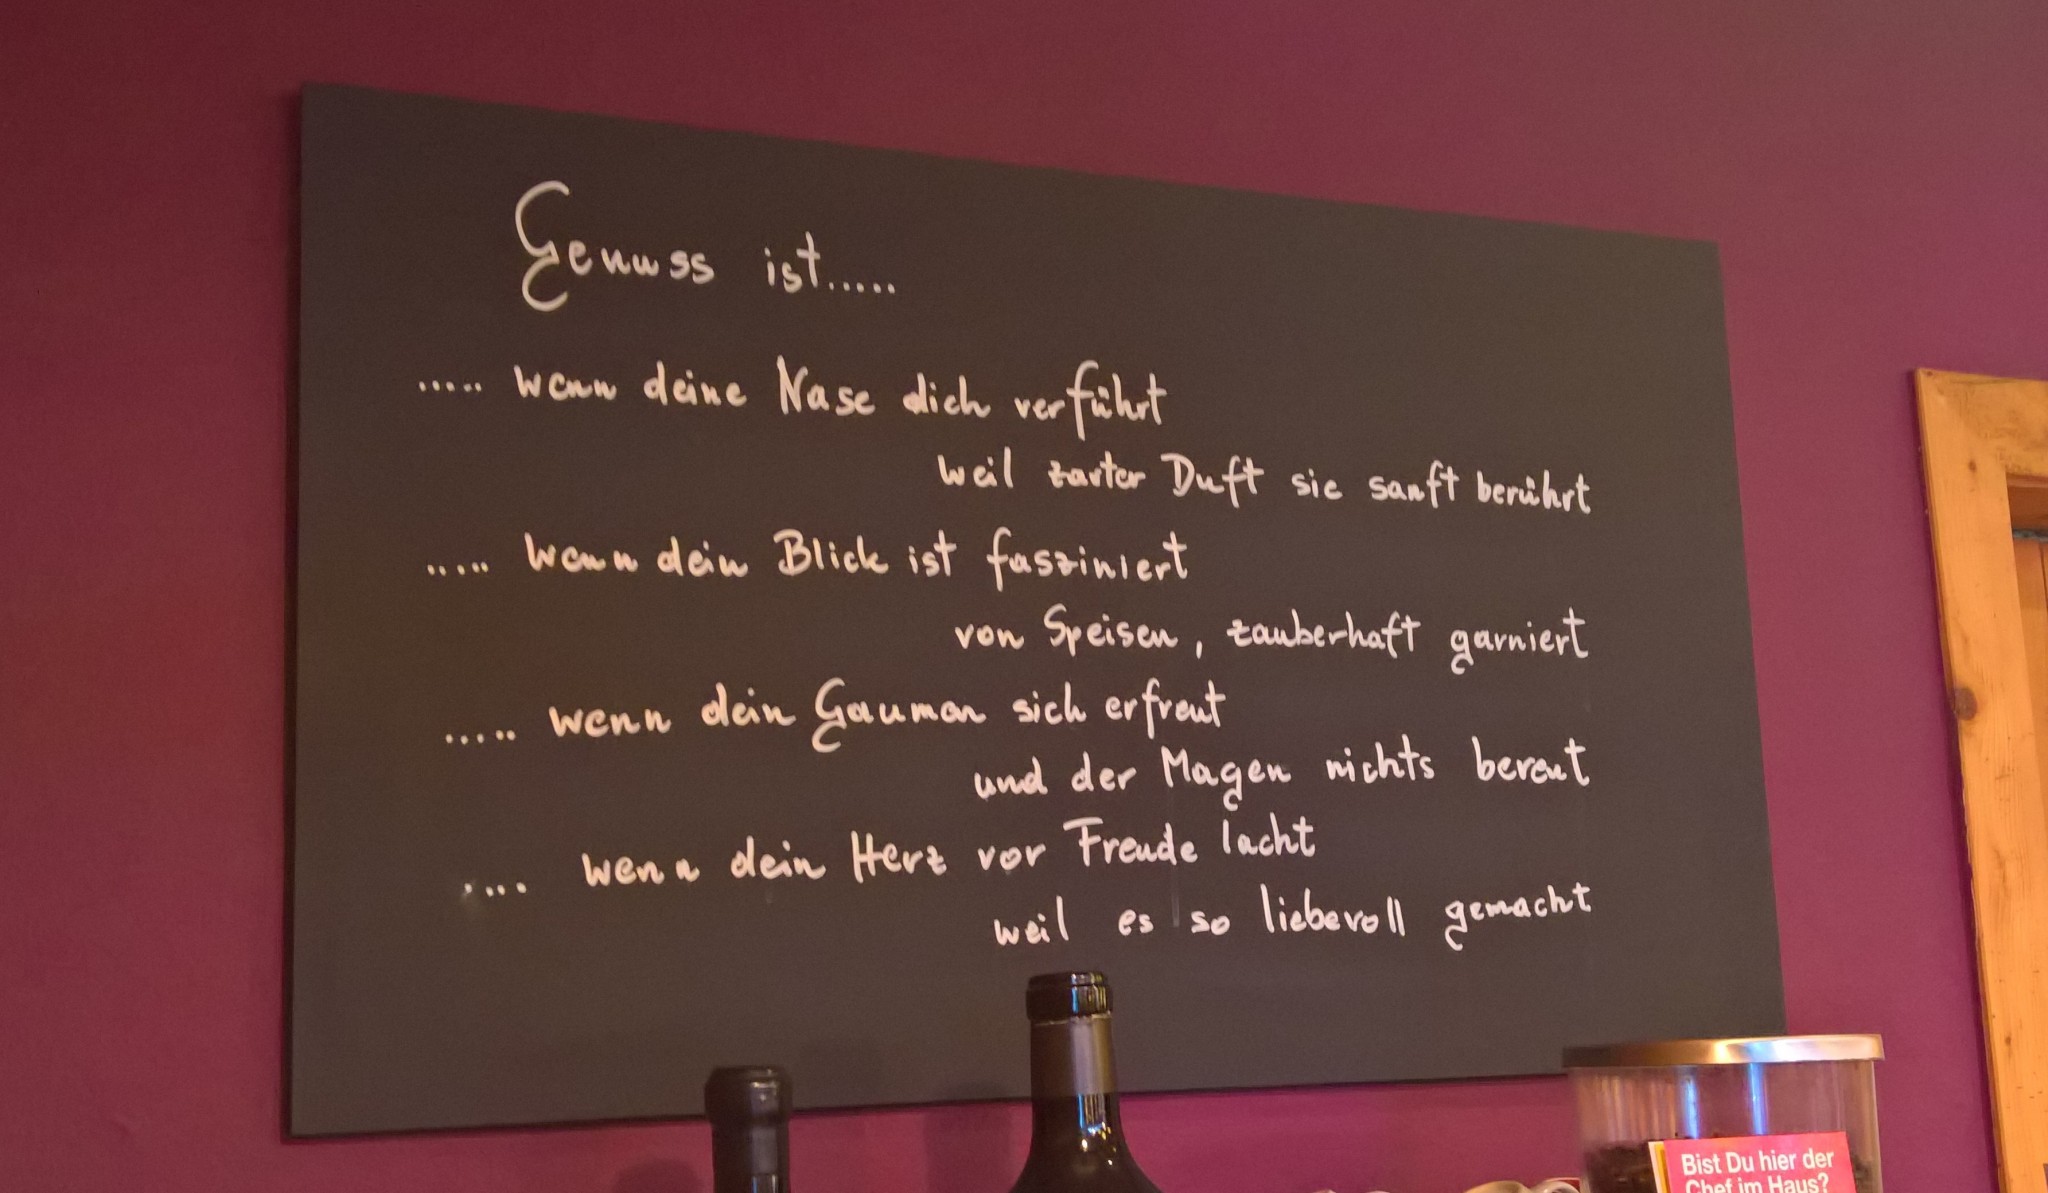 Genuss ist.....
..... wenn deine Nase dich verführt
weil zarter Duft sie sanft berührt
..... wenn dein Blick ist fasziniert
von Speisen, zauberhaft garniert
..... wenn dein Gaumen sich erfreut
und der Magen nichts bereut
.... wenn dein Herz vor Freude lacht
weil es so liebevoll gemacht
Bist Du hier der
Chef im Haus?